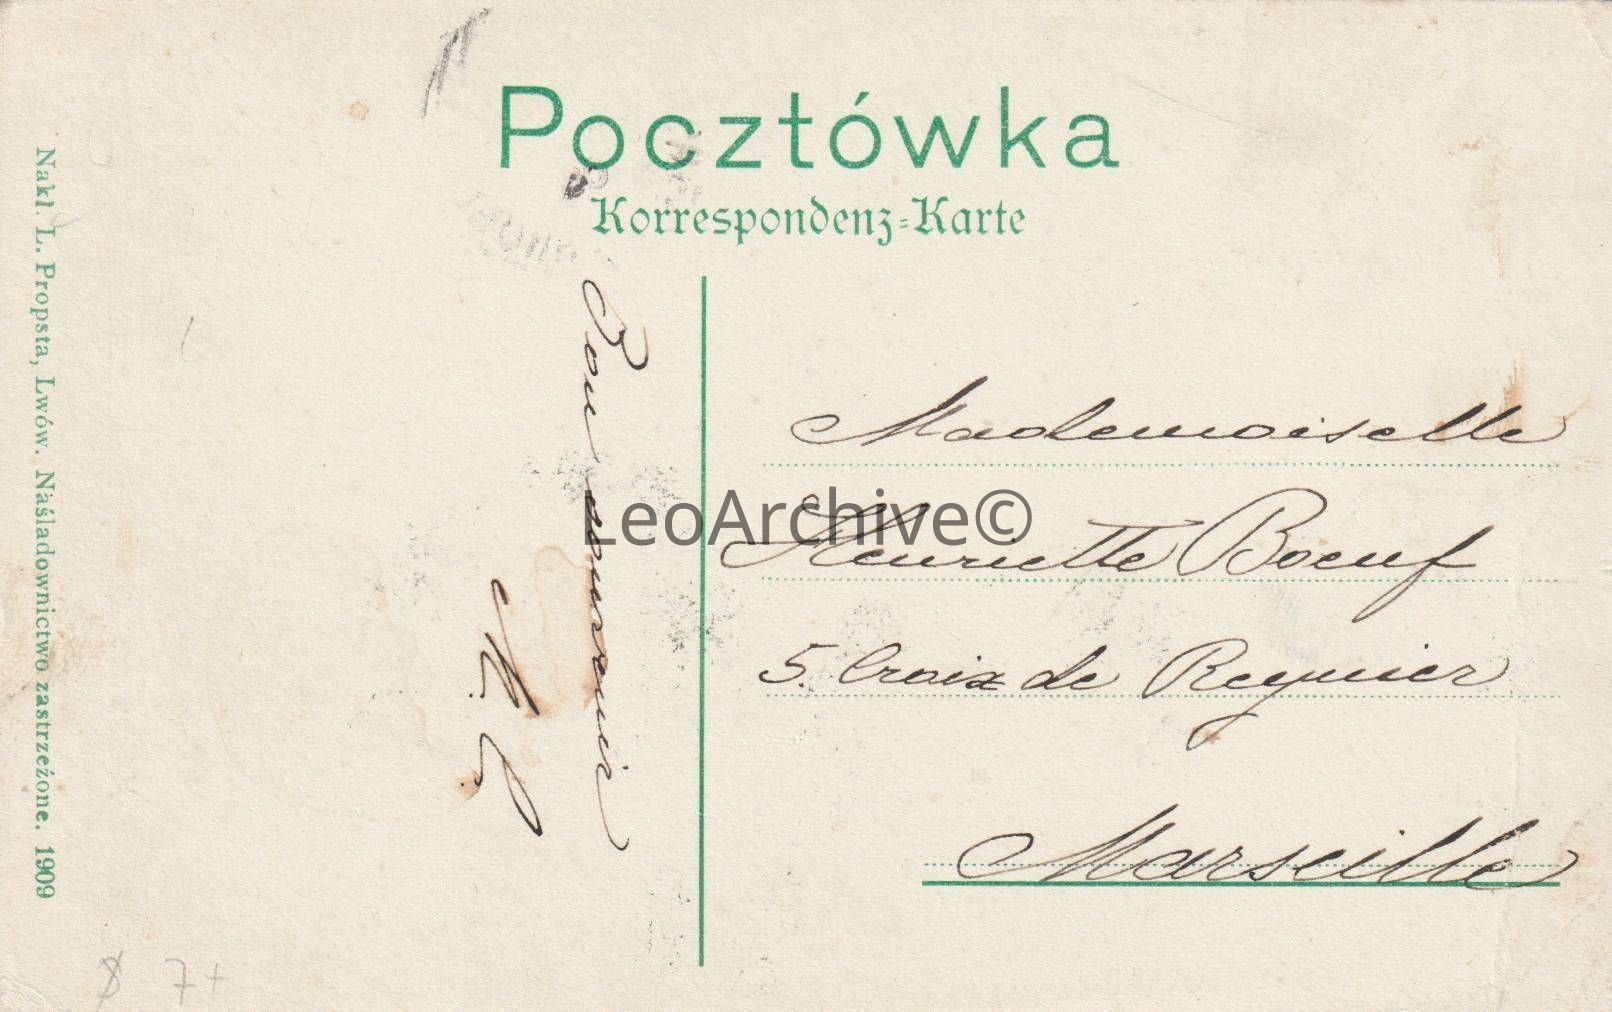 Pocztówka
Korrespondenz-Karte
Nakł. L. Propsta, Lwów. Naśladownictwo zastrzeżone. 1909
Bon souvenir
Mademoiselle
Henriette Boeuf
5. Croix de Reynier
Marseille
LeoArchive©
7+